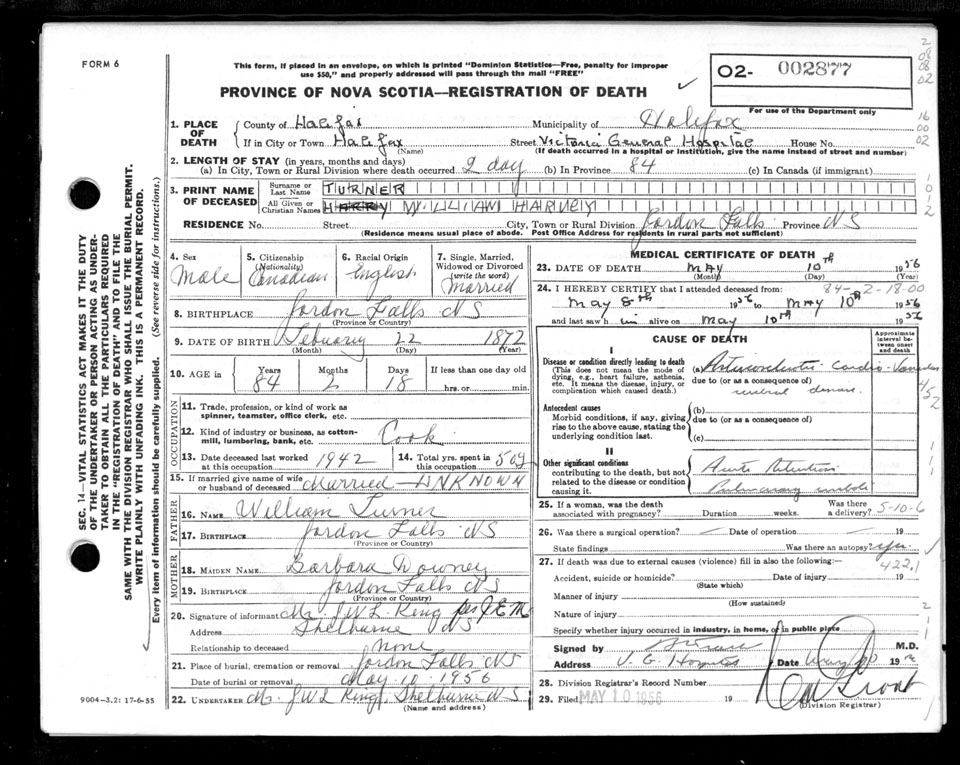 FORM 6
This form, if placed in an envelope, on which is printed "Dominion Statistics—Free, penalty for improper
use $50," and properly addressed will pass through the mail "FREE"
PROVINCE OF NOVA SCOTIA—REGISTRATION OF DEATH
O2- 002877
For use of the Department only
1. PLACE OF DEATH County of Halifax Municipality of Halifax
If in City or Town Halifax Street Victoria General Hospital House No.
(Name) (If death occurred in a hospital or institution, give the name instead of street and number)
2. LENGTH OF STAY (in years, months and days)
(a) In City, Town or Rural Division where death occurred 2 day (b) In Province 84 (c) In Canada (if immigrant)
3. PRINT NAME OF DECEASED Surname or Last Name TURNER
All Given or Christian Names HARRY WILLIAM HARVEY
RESIDENCE No. Street City, Town or Rural Division Jordon Falls Province NS
(Residence means usual place of abode. Post Office Address for residents in rural parts not sufficient)
4. Sex Male
5. Citizenship (Nationality) Canadian
6. Racial Origin English
7. Single, Married, Widowed or Divorced (write the word) Married
8. BIRTHPLACE Jordon Falls NS
(Province or Country)
9. DATE OF BIRTH February 22 1872
(Month) (Day) (Year)
10. AGE in Years Months Days If less than one day old
84 2 18 hrs. or min.
OCCUPATION
11. Trade, profession, or kind of work as
spinner, teamster, office clerk, etc.
12. Kind of industry or business, as cotton-
mill, lumbering, bank, etc. Cook
13. Date deceased last worked at this occupation 1942
14. Total yrs. spent in this occupation 50y
15. If married give name of wife or husband of deceased Married - UNKNOWN
FATHER
16. NAME William Turner
17. BIRTHPLACE Jordon Falls NS
(Province or Country)
MOTHER
18. MAIDEN NAME Barbara Downey
19. BIRTHPLACE Jordon Falls NS
(Province or Country)
20. Signature of informant Mr J W L King per J.E.M.
Address Shelburne NS
Relationship to deceased none
21. Place of burial, cremation or removal Jordon Falls NS
Date of burial or removal May 10 1956
22. UNDERTAKER Mr J W L King, Shelburne N S
(Name and address)
MEDICAL CERTIFICATE OF DEATH
23. DATE OF DEATH MAY 10th 1956
(Month) (Day) (Year)
24. I HEREBY CERTIFY that I attended deceased from:
84-2-18.00
May 8th 1956 to May 10th 1956
and last saw him alive on May 10th 1956
CAUSE OF DEATH
Approximate interval between onset and death
I
Disease or condition directly leading to death
(This does not mean the mode of
dying, e.g., heart failure, asthenia,
etc. It means the disease, injury, or
complication which caused death.)
(a) Cardio-Vascular
due to (or as a consequence of)
cerebral disease
Antecedent causes
Morbid conditions, if any, giving
rise to the above cause, stating the
underlying condition last.
(b)
due to (or as a consequence of)
(c)
II
Other significant conditions
contributing to the death, but not
related to the disease or condition
causing it.
Acute Retention
Pulmonary emboli
25. If a woman, was the death associated with pregnancy? Duration weeks. Was there a delivery?
5-10-6
26. Was there a surgical operation? Date of operation 19
State findings Was there an autopsy? Yes
27. If death was due to external causes (violence) fill in also the following:—
422.1
Accident, suicide or homicide? Date of injury 19
(State which)
Manner of injury
(How sustained)
Nature of injury
Specify whether injury occurred in industry, in home, or in public place
Signed by M.D.
Address V. G. Hospital Date May 19
28. Division Registrar's Record Number
29. Filed MAY 10 1956 19
(Division Registrar)
9004—3.2: 17-6-55
SEC. 14—VITAL STATISTICS ACT MAKES IT THE DUTY
OF THE UNDERTAKER OR PERSON ACTING AS UNDER-
TAKER TO OBTAIN ALL THE PARTICULARS REQUIRED
IN THE "REGISTRATION OF DEATH" AND TO FILE THE
SAME WITH THE DIVISION REGISTRAR WHO SHALL ISSUE THE BURIAL PERMIT.
WRITE PLAINLY WITH UNFADING INK. THIS IS A PERMANENT RECORD.
Every item of information should be carefully supplied. (See reverse side for instructions.)